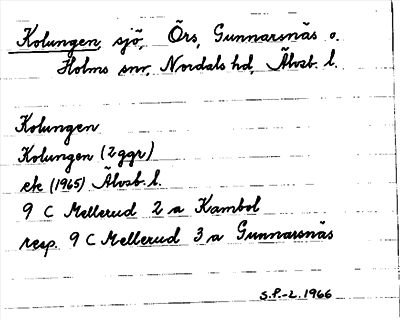 Kolungen, sjö, Örs, Gunnarsnäs o.
Holms snr, Nordals hd, Älvsb. l.
Kolungen
Kolungen (2 ggr)
ek (1965) Älvsb. l.
9 C Mellerud 2 a Kambol
resp. 9 C Mellerud 3 a Gunnarsnäs
S.F.-L. 1966